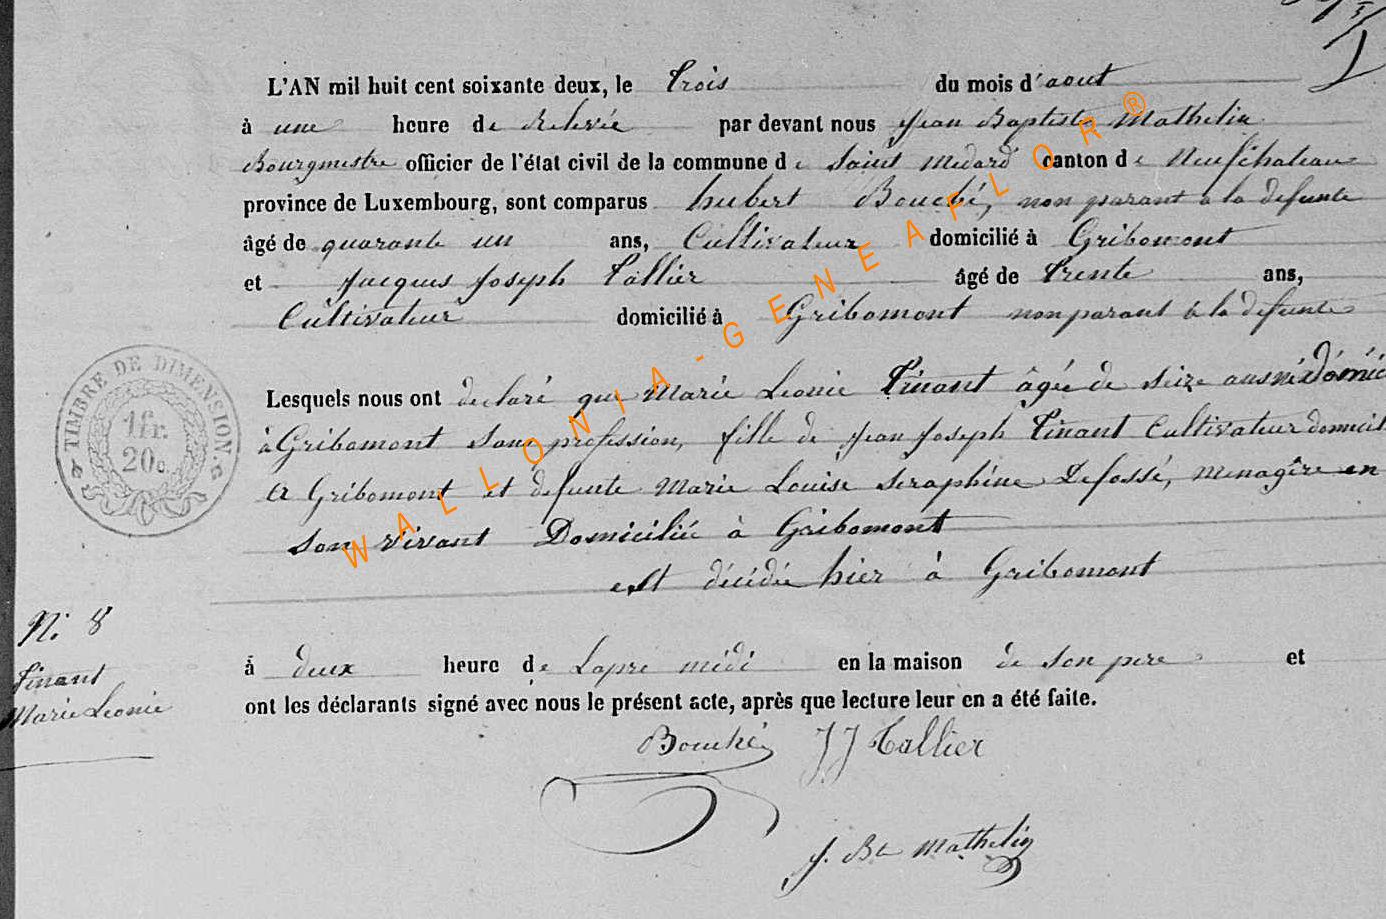 L'AN mil huit cent soixante deux, le Trois du mois d'aout
à une heure de Relevée par devant nous Jean Baptiste Mathelin
Bourgmestre officier de l'état civil de la commune de Saint Medard canton de Neufchateau
province de Luxembourg, sont comparus hubert Bouché, non parant a la defunte
âgé de quarante un ans, Cultivateur domicilié à Gribomont
et Jacques Joseph Tallier âgé de Trente ans,
Cultivateur domicilié à Gribomont non parant à la defunte
TIMBRE DE DIMENSION.
1fr.
20c.
Lesquels nous ont declaré que Marie Leonie Tinant âgée de seize ans née
à Gribomont sans profession, fille de Jean Joseph Tinant Cultivateur domicil
a Gribomont et defunte Marie Louise Seraphine Defossé, menagère en
son vivant Domiciliée à Gribomont
est décédée hier à Gribomont
N. 8
Tinant
Marie Leonie
à deux heure de Lapre midi en la maison de son pere et
ont les déclarants signé avec nous le présent acte, après que lecture leur en a été faite.
Bouché JJ Tallier
J. Bte Mathelin
WALLONIA-GENEAFLOR®